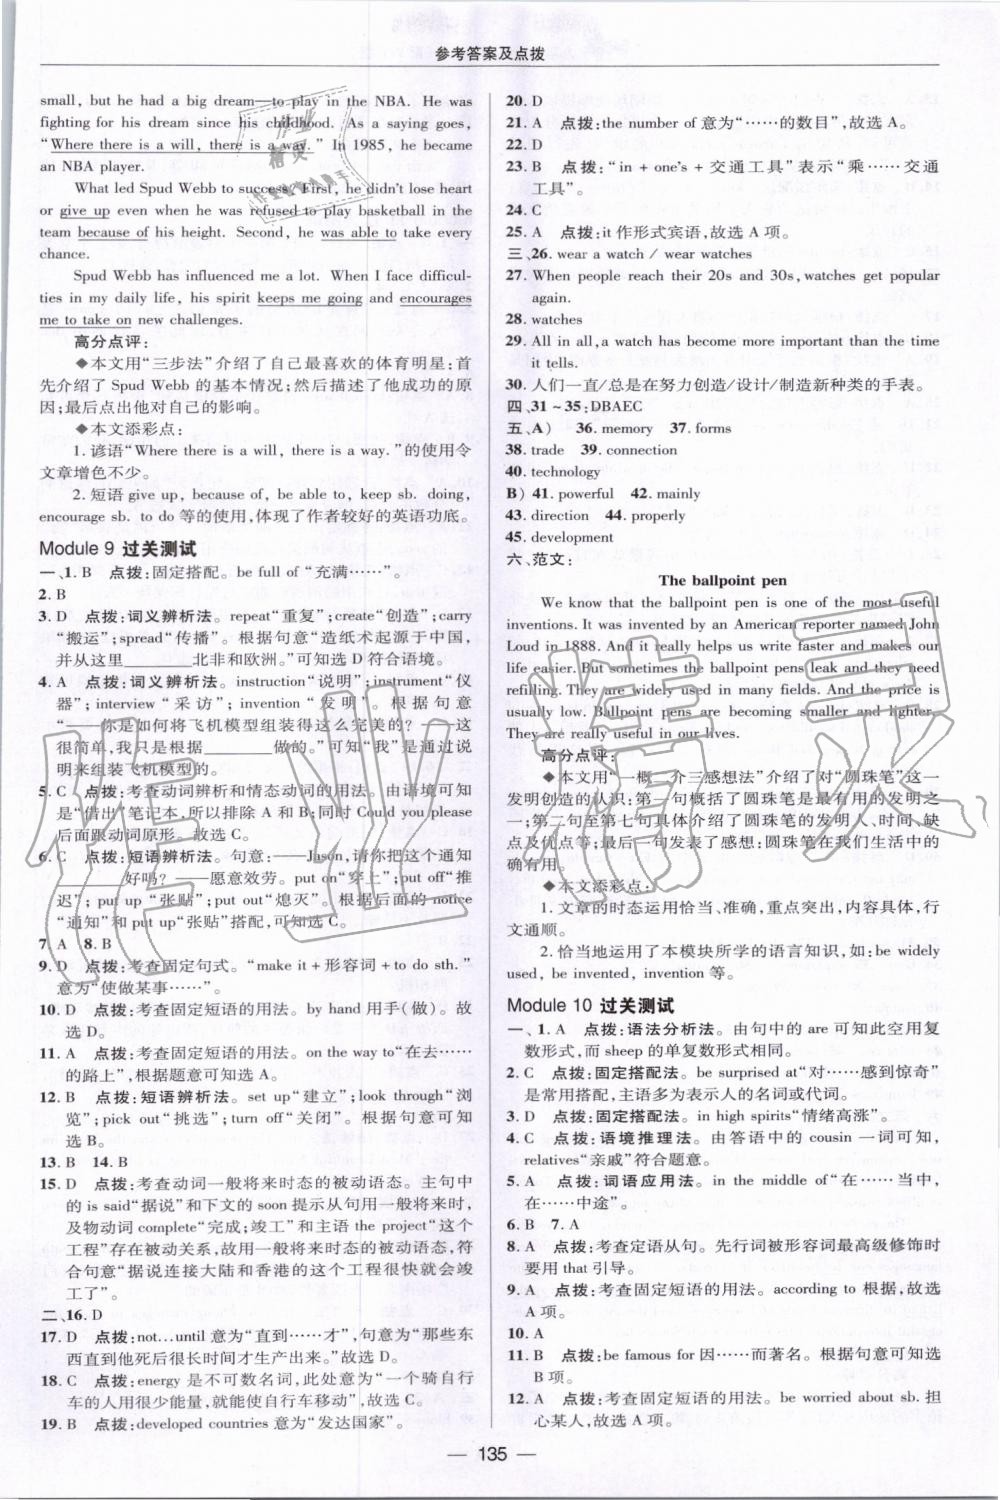 参考答案及点拨
small, but he had a big dream—to play in the NBA. He was
fighting for his dream since his childhood. As a saying goes,
“Where there is a will, there is a way.” In 1985, he became
an NBA player.
What led Spud Webb to success? First, he didn't lose heart
or give up even when he was refused to play basketball in the
team because of his height. Second, he was able to take every
chance.
Spud Webb has influenced me a lot. When I face difficul-
ties in my daily life, his spirit keeps me going and encourages
me to take on new challenges.
高分点评:
◆本文用“三步法”介绍了自己最喜欢的体育明星;首
先介绍了 Spud Webb 的基本情况;然后描述了他成功的原
因;最后点出他对自己的影响。
◆本文添彩点:
1. 谚语“Where there is a will, there is a way.”的使用令
文章增色不少。
2. 短语 give up, because of, be able to, keep sb. doing,
encourage sb. to do 等的使用,体现了作者较好的英语功底。
Module 9 过关测试
一、1. B 点拨:固定搭配。be full of “充满……”。
2. B
3. D 点拨:词义辨析法。repeat“重复”;create“创造”;carry
“搬运”;spread“传播”。根据句意“造纸术起源于中国,
并从这里________北非和欧洲。”可知选 D 符合语境。
4. A 点拨:词义辨析法。instruction“说明”;instrument“仪
器”;interview “采访”;invention “发明”。根据句意
“——你是如何将飞机模型组装得这么完美的? ——这
很简单,我只是根据________做的。”可知“我”是通过说
明来组装飞机模型的。
5. C 点拨:考查动词辨析和情态动词的用法。由语境可知
是“借出”笔记本,所以排除 A 和 B;同时 Could you please
后面跟动词原形。故选 C。
6. C 点拨:短语辨析法。句意:——Jason,请你把这个通知
________好吗? ——愿意效劳。put on“穿上”;put off“推
迟”;put up “张贴”;put out“熄灭”。根据后面的 notice
“通知”和 put up“张贴”搭配,可知选 C。
7. A 8. B
9. D 点拨:考查固定句式。“make it + 形容词 + to do sth.”
意为“使做某事……”。
10. D 点拨:考查固定短语的用法。by hand 用手(做)。故
选 D。
11. A 点拨:考查固定短语的用法。on the way to“在去……
的路上”,根据题意可知选 A。
12. B 点拨:短语辨析法。set up“建立”;look through“浏
览”;pick out “挑选”;turn off “关闭”。根据句意可知
选 B。
13. B 14. B
15. D 点拨:考查动词一般将来时态的被动语态。主句中
的 is said“据说”和下文的 soon 提示从句用一般将来时,
及物动词 complete“完成;竣工”和主语 the project“这个
工程”存在被动关系,故用一般将来时态的被动语态,符
合句意“据说连接大陆和香港的这个工程很快就会竣
工了”。
二、16. D
17. D 点拨:not...until 意为“直到……才”,句意为“那些东
西直到他死后很长时间才生产出来。”故选 D。
18. C 点拨:energy 是不可数名词,此处意为“一个骑自行
车的人用很少能量,就能使自行车移动”,故选 C。
19. B 点拨:developed countries 意为“发达国家”。
20. D
21. A 点拨:the number of 意为“……的数目”,故选 A。
22. D
23. B 点拨:“in + one's + 交通工具”表示“乘……交通
工具”。
24. C
25. A 点拨:it 作形式宾语,故选 A 项。
三、26. wear a watch / wear watches
27. When people reach their 20s and 30s, watches get popular
again.
28. watches
29. All in all, a watch has become more important than the time
it tells.
30. 人们一直/总是在努力创造/设计/制造新种类的手表。
四、31 ~ 35:DBAEC
五、A) 36. memory 37. forms
38. trade 39. connection
40. technology
B) 41. powerful 42. mainly
43. direction 44. properly
45. development
六、范文:
The ballpoint pen
We know that the ballpoint pen is one of the most useful
inventions. It was invented by an American reporter named John
Loud in 1888. And it really helps us write faster and makes our
life easier. But sometimes the ballpoint pens leak and they need
refilling. They are widely used in many fields. And the price is
usually low. Ballpoint pens are becoming smaller and lighter.
They are really useful in our lives.
高分点评:
◆本文用“一概二介三感想法”介绍了对“圆珠笔”这一
发明创造的认识;第一句概括了圆珠笔是最有用的发明之
一;第二句至第七句具体介绍了圆珠笔的发明人、时间、缺
点及优点等;最后一句发表了感想:圆珠笔在我们生活中的
确有用。
◆本文添彩点:
1. 文章的时态运用恰当、准确,重点突出,内容具体,行
文通顺。
2. 恰当地运用了本模块所学的语言知识,如:be widely
used, be invented, invention 等。
Module 10 过关测试
一、1. A 点拨:语法分析法。由句中的 are 可知此空用复
数形式,而 sheep 的单复数形式相同。
2. C 点拨:固定搭配法。be surprised at“对……感到惊奇”
是常用搭配,主语多为表示人的名词或代词。
3. D 点拨:固定搭配法。in high spirits“情绪高涨”。
4. C 点拨:语境推理法。由答语中的 cousin 一词可知,
relatives“亲戚”符合题意。
5. A 点拨:词语应用法。in the middle of“在……当中,
在……中途”。
6. B 7. A
8. A 点拨:考查定语从句。先行词被形容词最高级修饰时
要用 that 引导。
9. A 点拨:考查固定短语的用法。according to 根据,故选
A 项。
10. A
11. B 点拨:be famous for 因……而著名。根据句意可知选
B 项。
12. A 点拨:考查固定短语的用法。be worried about sb. 担
心某人,故选 A 项。
— 135 —
作业精灵